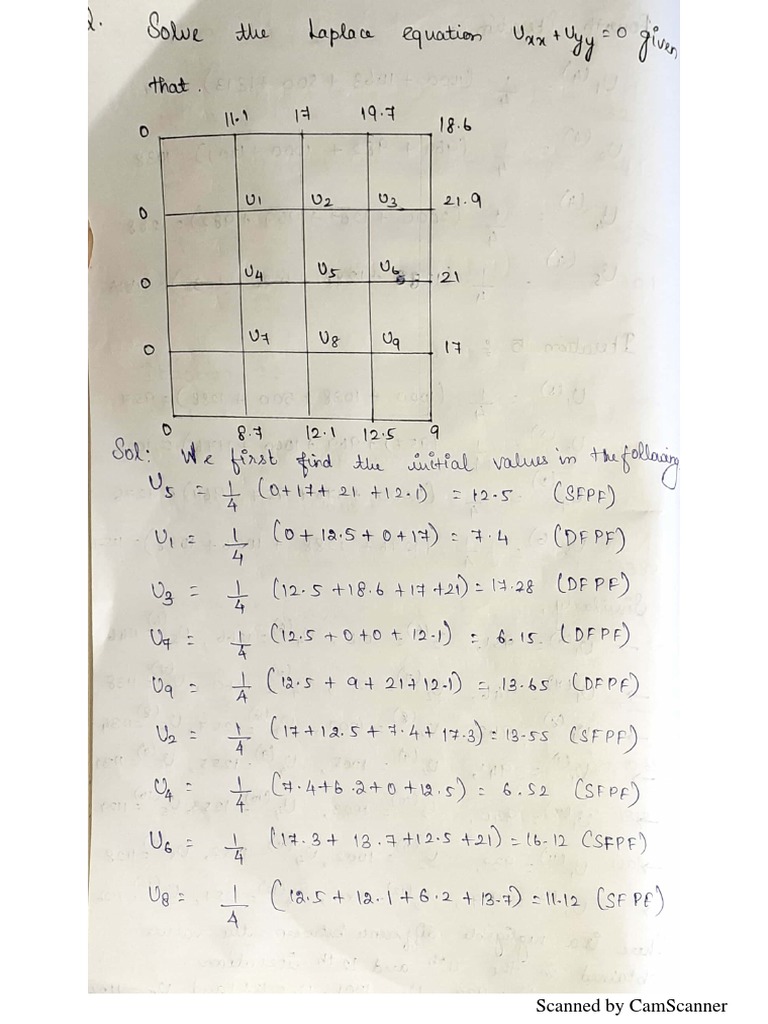 2. Solve the Laplace equation Uxx + Uyy = 0 given
that.
0 11.1 17 19.7 18.6
0 U1 U2 U3 21.9
0 U4 U5 U6 21
0 U7 U8 U9 17
0 8.7 12.1 12.5 9
Sol: We first find the initial values in the following
U5 = 1/4 (0+17+21+12.1) = 12.5 (SFPF)
U1 = 1/4 (0+12.5+0+17) = 7.4 (DFPF)
U3 = 1/4 (12.5+18.6+17+21) = 17.28 (DFPF)
U7 = 1/4 (12.5+0+0+12.1) = 6.15 (DFPF)
U9 = 1/4 (12.5+9+21+12.1) = 13.65 (DFPF)
U2 = 1/4 (17+12.5+7.4+17.3) = 13.55 (SFPF)
U4 = 1/4 (7.4+6.2+0+12.5) = 6.52 (SFPF)
U6 = 1/4 (17.3+13.7+12.5+21) = 16.12 (SFPF)
U8 = 1/4 (12.5+12.1+6.2+13.7) = 11.12 (SFPF)
Scanned by CamScanner